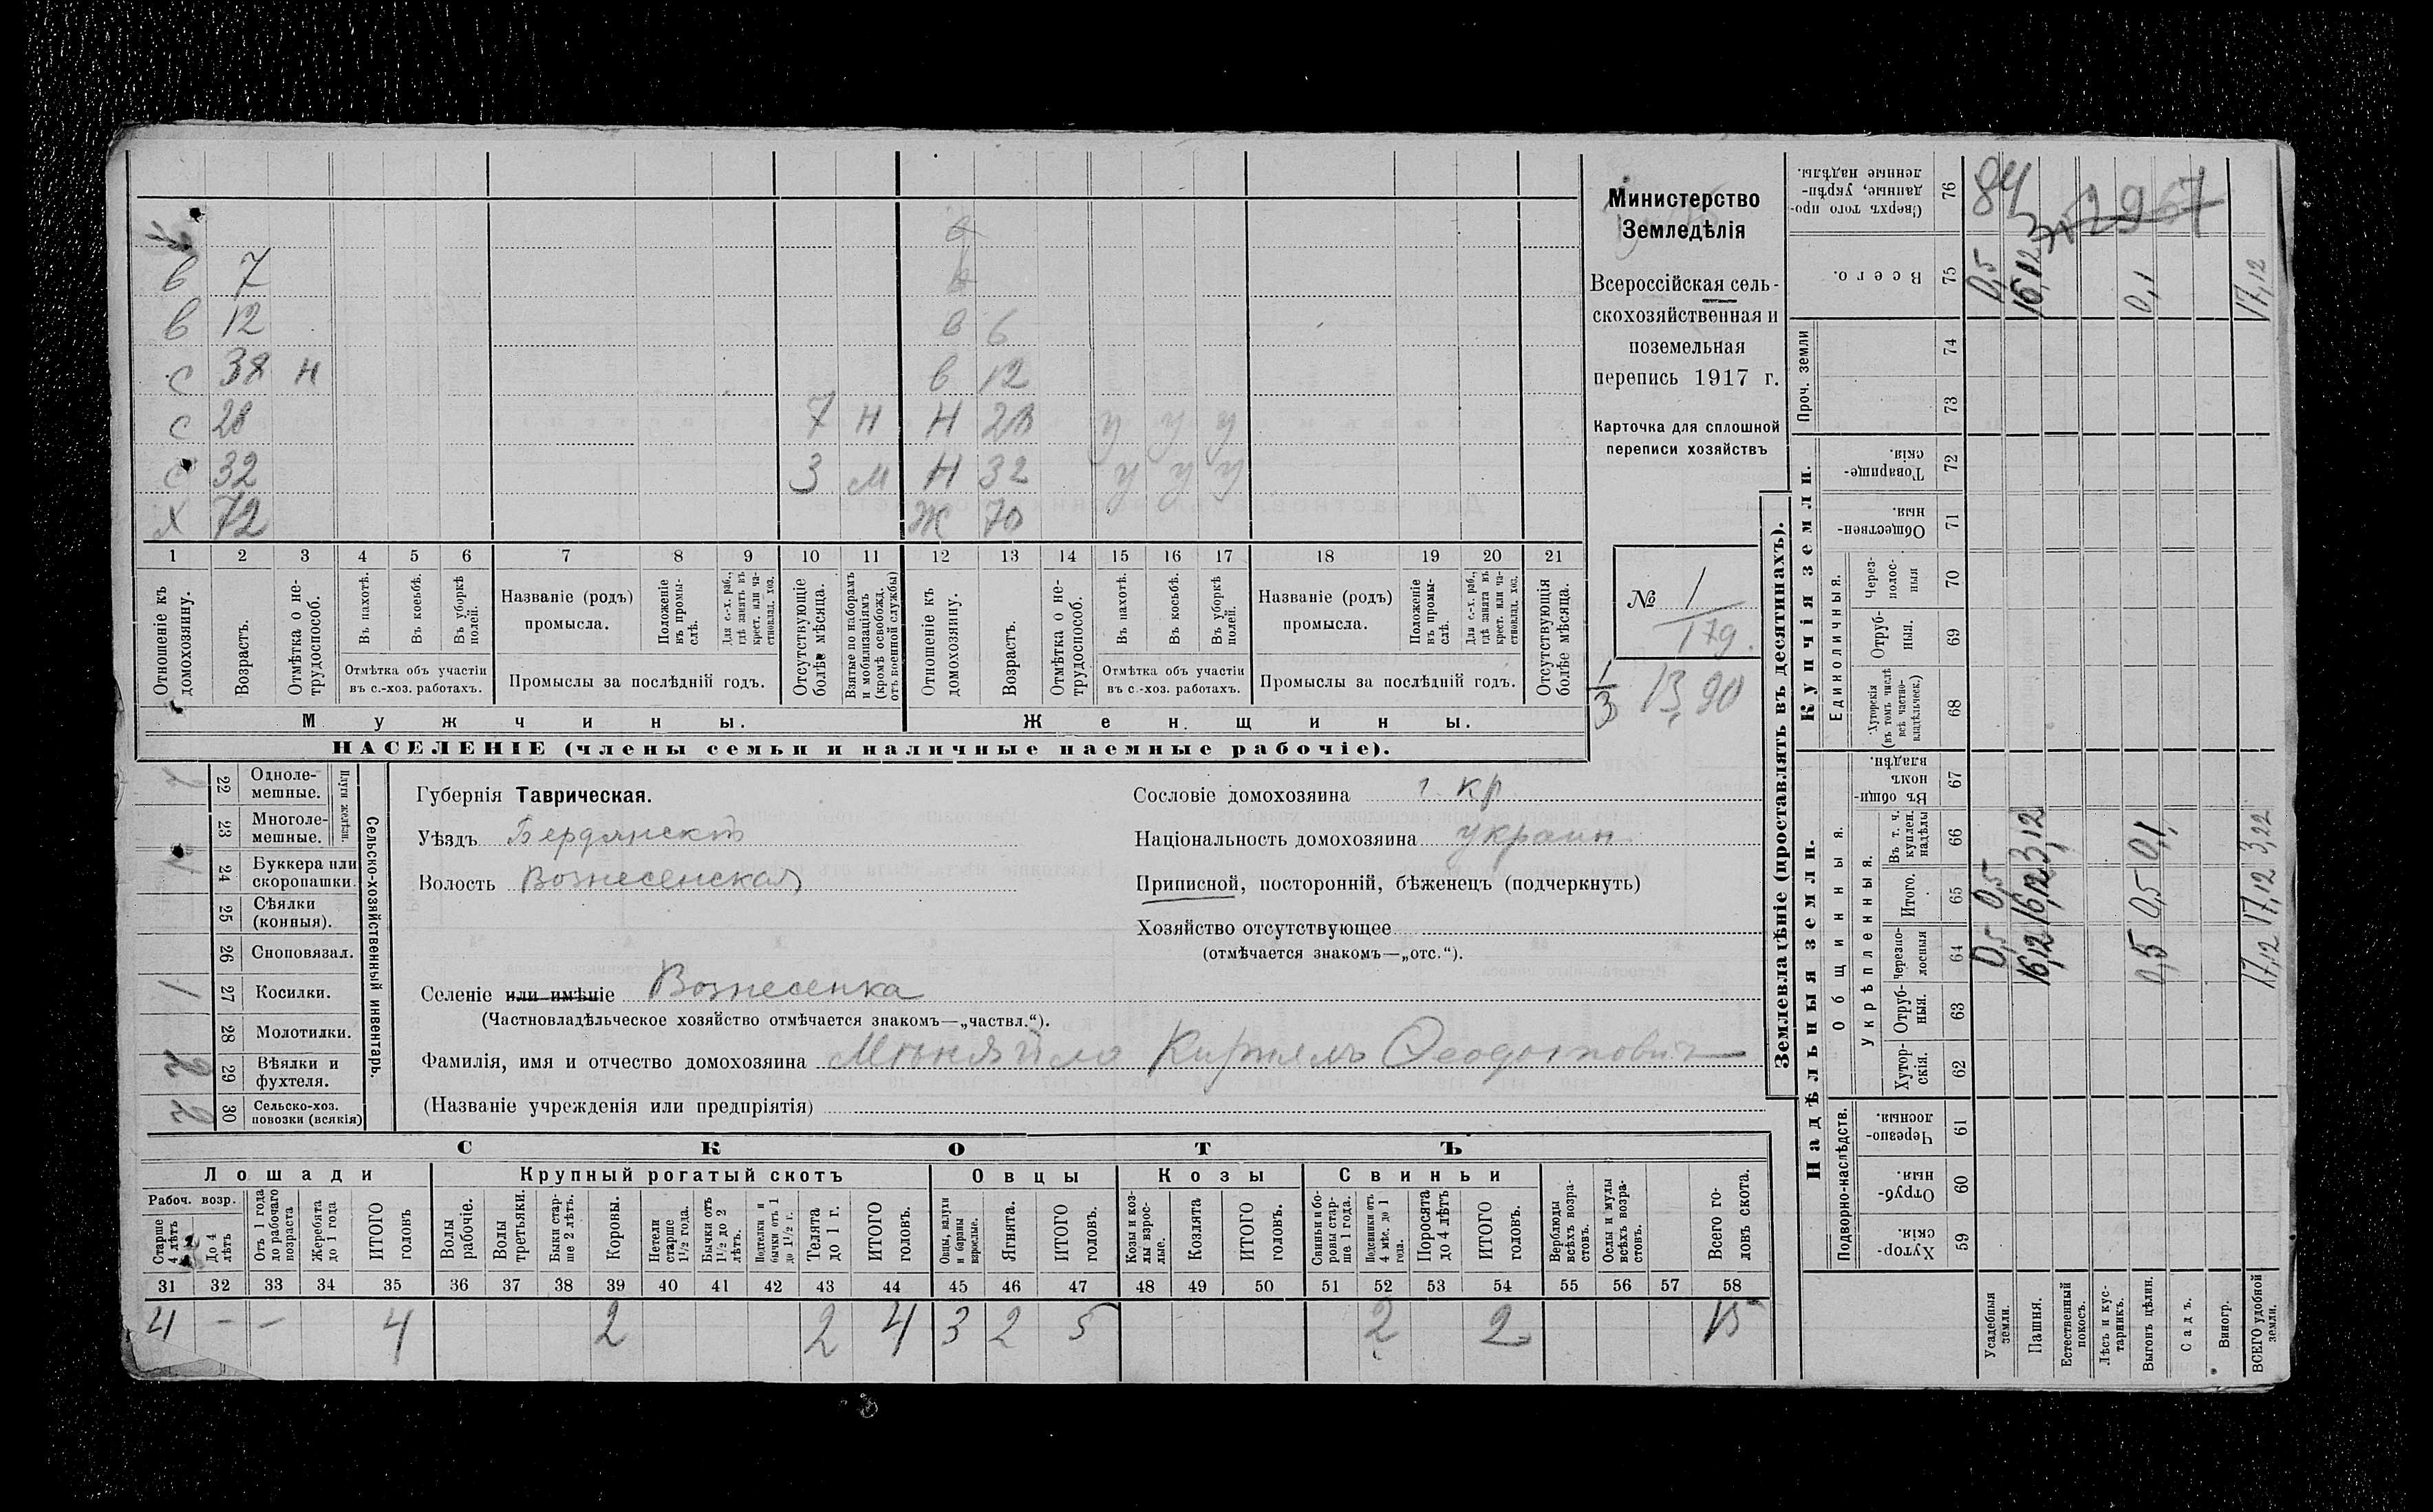 в 7
в 12 в 6
с 38 н в 12
с 28 7 н н 28 у у у
с 32 3 м н 32 у у у
х 72 ж 70
1 2 3 4 5 6 7 8 9 10 11 12 13 14 15 16 17 18 19 20 21
Отношеніе къ домохозяину.
Возрастъ.
Отмѣтка о не-
трудоспособ.
Въ пахотѣ.
Въ косьбѣ.
Въ уборкѣ полей.
Отмѣтка объ участіи
въ с.-хоз. работахъ.
Названіе (родъ)
промысла.
Положеніе въ промы-
слѣ.
Для с.-х. раб.,
гдѣ занятъ въ
крест. или ча-
стновлад. хоз.
Промыслы за послѣдній годъ.
Отсутствующіе
болѣе мѣсяца.
Взятые по наборамъ
и мобилизаціямъ
(кромѣ освобожд.
отъ военной службы)
Отношеніе къ
домохозяину.
Возрастъ.
Отмѣтка о не-
трудоспособ.
Въ пахотѣ.
Въ косьбѣ.
Въ уборкѣ полей.
Отмѣтка объ участіи
въ с.-хоз. работахъ.
Названіе (родъ)
промысла.
Положеніе
въ промы-
слѣ.
Для с.-х. раб.,
гдѣ занята въ
крест. или ча-
стновлад. хоз.
Промыслы за послѣдній годъ.
Отсутствующія
болѣе мѣсяца.
Мужчины.
Женщины.
НАСЕЛЕНІЕ (члены семьи и наличные наемные рабочіе).
Министерство
Земледѣлія
Всероссійская сель-
скохозяйственная и
поземельная
перепись 1917 г.
Карточка для сплошной
переписи хозяйствъ
№ 1
179.
1/3 13,90
22 Одноле-
мешные.
23 Многоле-
мешные.
Плуги желѣзн.
24 Буккера или
скоропашки.
25 Сѣялки
(конныя).
26 Сноповязал.
27 Косилки. 1
28 Молотилки.
29 Вѣялки и
фухтеля. 2
30 Сельско-хоз.
повозки (всякія) 2
Сельско-хозяйственный инвентарь.
Губернія Таврическая.
Уѣздъ Бердянскъ
Волость Вознесенская
Селеніе или имѣніе Вознесенка
(Частновладѣльческое хозяйство отмѣчается знакомъ—„частвл.“).
Фамилія, имя и отчество домохозяина Миняйло Кирилъ Ѳеодотовичъ
(Названіе учрежденія или предпріятія)
Сословіе домохозяина кр
Національность домохозяина украин
Приписной, посторонній, бѣженецъ (подчеркнуть)
Хозяйство отсутствующее
(отмѣчается знакомъ—„отс.“).
СКОТЪ
Лошади
Крупный рогатый скотъ
Овцы
Козы
Свиньи
Рабоч. возр.
Старше
4 лѣтъ
До 4
лѣтъ
Отъ 1 года
до рабочаго
возраста
Жеребята
до 1 года
ИТОГО
головъ
Волы
рабочіе.
Волы
третьяки.
Быки стар-
ше 2 лѣтъ.
Коровы.
Нетели
старше
1½ года.
Бычки отъ
1½ до 2
лѣтъ.
Подтелки и
бычки отъ 1
до 1½ г.
Телята
до 1 г.
ИТОГО
головъ.
Овцы, валухи
и бараны
взрослые.
Ягнята.
ИТОГО
головъ.
Козы и коз-
лы взрос-
лые.
Козлята
ИТОГО
головъ.
Свиньи и бо-
ровы стар-
ше 1 года.
Подсвинки отъ
4 мѣс. до 1
года.
Поросята
до 4 лѣтъ
ИТОГО
головъ.
Верблюды
всѣхъ возра-
стовъ.
Ослы и мулы
всѣхъ возра-
стовъ.
Всего го-
ловъ скота.
31 32 33 34 35 36 37 38 39 40 41 42 43 44 45 46 47 48 49 50 51 52 53 54 55 56 57 58
4 – – 4 2 2 4 3 2 5 2 2 15
Землевладѣніе (проставлять въ десятинахъ).
Надѣльныя земли.
Купчія земли.
Проч. земли
Подворно-наслѣдств.
Общинныя.
Укрѣпленныя.
Единоличныя.
Хутор-
скія. 59
Отруб-
ныя. 60
Черезпо-
лосныя. 61
Хутор-
скія. 62
Отруб-
ныя. 63
Черезпо-
лосныя 64
Итого. 65
Въ т. ч.
куплен.
надѣлы 66
Въ общин-
номъ
владѣн. 67
Хуторскія
(въ томъ числѣ
всѣ частно-
владѣльческ.) 68
Отруб-
ныя. 69
Через-
полос-
ныя 70
Обществен-
ныя. 71
Товарище-
скія. 72
73
74
Всего. 75
Сверхъ того про-
данные, укрѣп-
ленные надѣлы. 76
Усадебныя
земли. 0,5 0,5 0,5 84
Пашня. 16,12 16,12 3,12 16,12
Естественный
покосъ.
Лѣсъ и кус-
тарникъ.
Выгонъ цѣлин. 0,5 0,5 0,1 0,1
Садъ.
Виногр.
ВСЕГО удобной
земли. 17,12 17,12 3,22 17,12